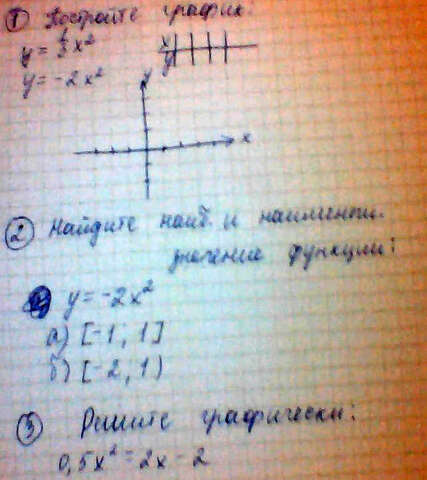 ① Постройте график:
y = 1/3 x²
x
y
y = -2x²
y
x
② Найдите наиб. и наименьш.
значение функции:
y = -2x²
а) [-1; 1]
б) [-2; 1)
③ Решите графически:
0,5x² = 2x - 2